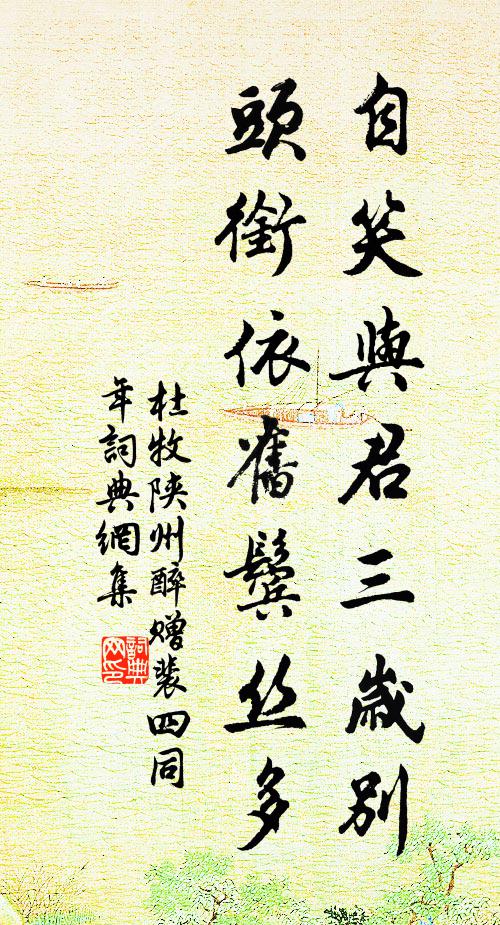 自笑與君三歲別
頭銜依舊鬢丝多
杜牧陕州醉赠裴四同
年詞典網集
詞典
网印